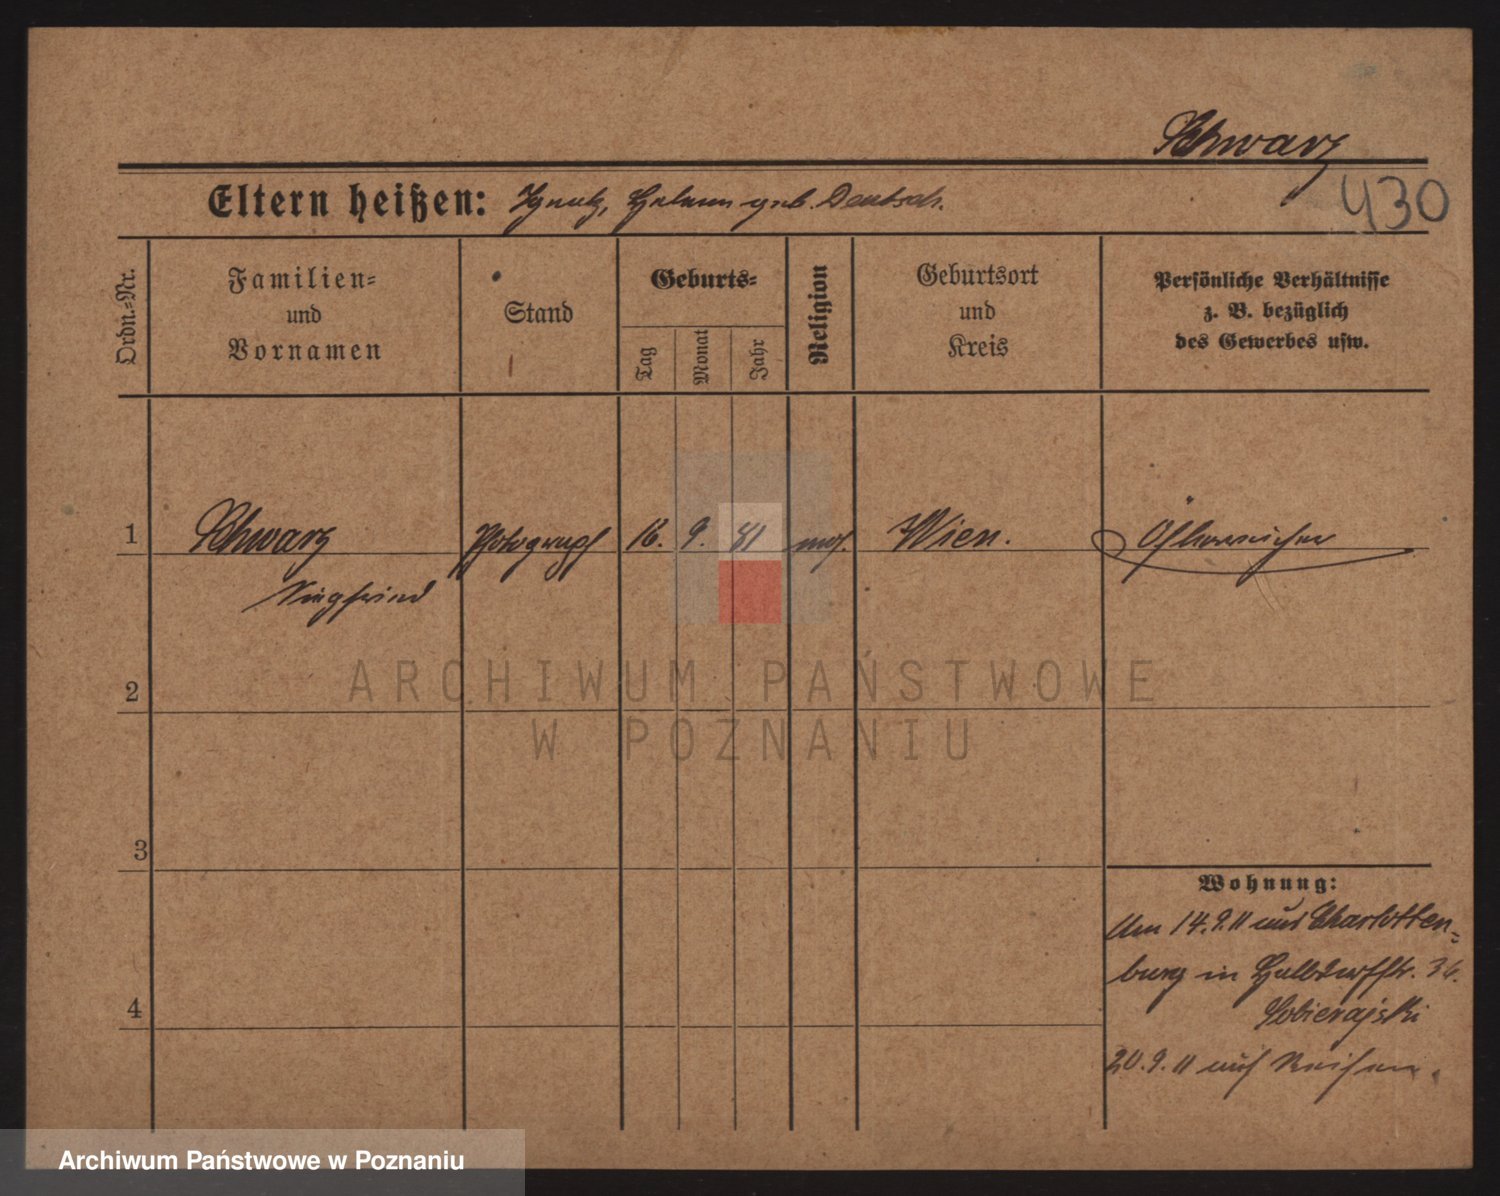 Schwarz
430
Eltern heißen: Ignatz, Helene geb. Deutsch.
Ordn.=Nr.
Familien=
und
Vornamen
Stand
Geburts=
Tag
Monat
Jahr
Religion
Geburtsort
und
Kreis
Persönliche Verhältnisse
z. B. bezüglich
des Gewerbes usw.
1
Schwarz
Siegfried
Photograph
16. 9. 81
mos.
Wien.
Österreicher
ARCHIWUM PAŃSTWOWE
W POZNANIU
2
3
4
Wohnung:
14.9.11 aus Charlotten=
burg in Halbdorfstr. 36.
Sobierajski
20.9.11 auf Reisen.
Archiwum Państwowe w Poznaniu